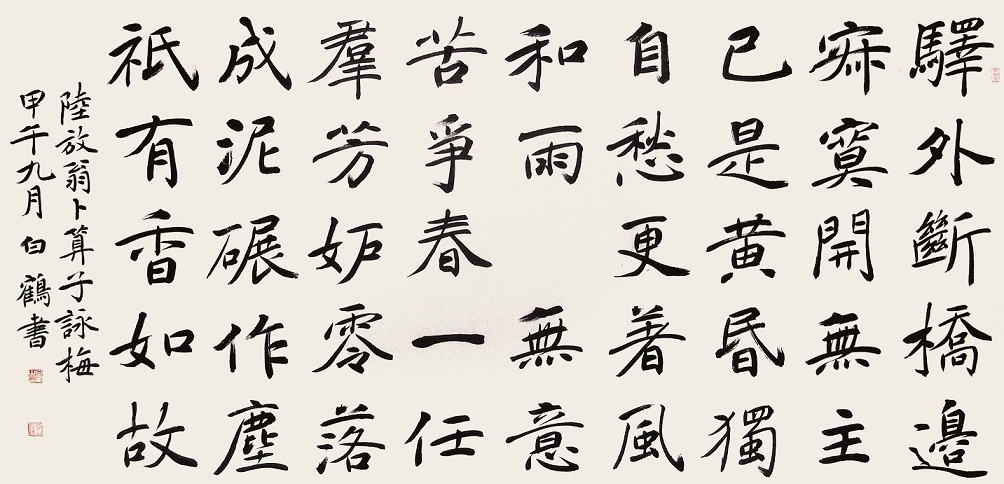 驛外斷橋邊
寂寞開無主
已是黃昏獨
自愁更著風
和雨無意
苦爭春一任
羣芳妒零落
成泥碾作塵
祇有香如故
陸放翁卜算子詠梅
甲午九月白鶴書